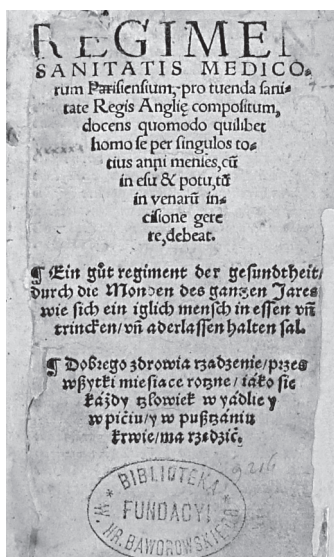 REGIMEN
SANITATIS MEDICO⸗
rum Parisiensium, pro tuenda sani⸗
tate Regis Anglię compositum,
docens quomodo quilibet
homo se per singulos to⸗
tius anni menses, cũ
in esu & potu, tũ
in venarũ in⸗
cisione gere
re, debeat.
¶ Ein gůt regiment der gesundtheit/
durch die Monden des gantzen Jares
wie sich ein iglich mensch in essen vñ
trincken/ vñ aderlassen halten sal.
¶ Dobrego zdrowia rządzenie/ przes
wßytki miesiące rotzne/ iáko się
káżdy tzlowiek w yadlie y
w piciu/ y w pußtzániu
krwie/ ma rządzić.
9216
* BIBLIOTEKA *
FUNDACYI
W. HR. BAWOROWSKIEGO